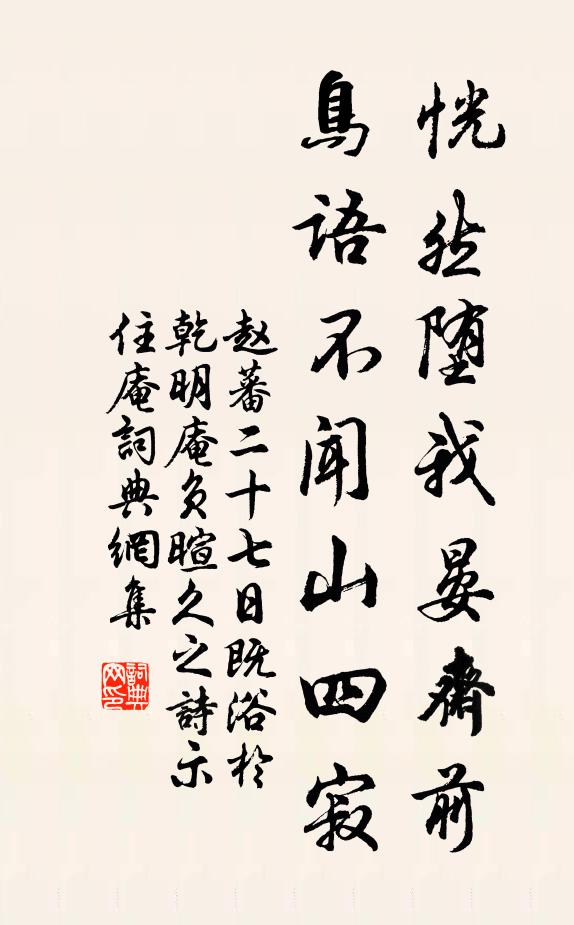 恍然墮我晏齋前
鳥語不闻山四寂
赵蕃二十七日既浴於
乾明庵负暄久之詩示
住庵詞典網集
詞典网印